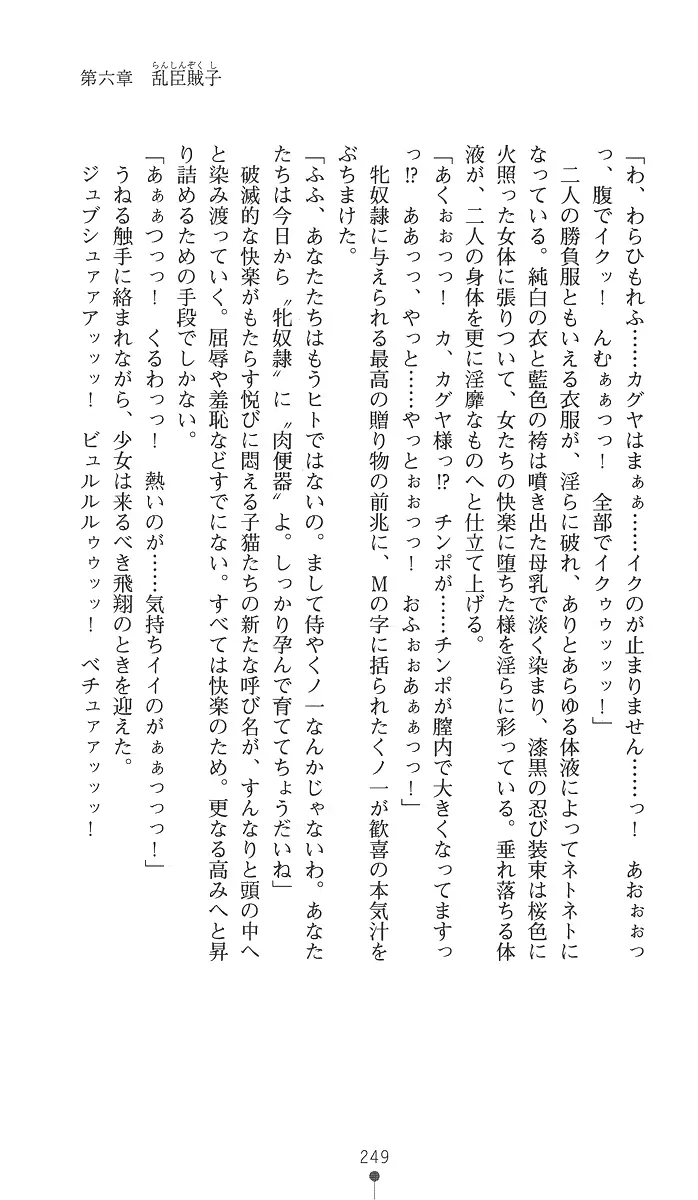 第六章　乱臣賊子
らんしんぞくし
「わ、わらひもれふ……カグヤはまぁぁ……イクのが止まりません……っ！　あおぉぉっ
っ、腹でイクッ！　んむぁぁっっ！　全部でイクゥゥッッッ！」
二人の勝負服ともいえる衣服が、淫らに破れ、ありとあらゆる体液によってネトネトに
なっている。純白の衣と藍色の袴は噴き出た母乳で淡く染まり、漆黒の忍び装束は桜色に
火照った女体に張りついて、女たちの快楽に堕ちた様を淫らに彩っている。垂れ落ちる体
液が、二人の身体を更に淫靡なものへと仕立て上げる。
「あくぉぉっっ！　カ、カグヤ様っ!?　チンポが……チンポが膣内で大きくなってますっ
っ!?　ああっっ、やっと……やっとぉぉっっ！　おふぉぉあぁぁっっ！」
牝奴隷に与えられる最高の贈り物の前兆に、Ｍの字に括られたくノ一が歓喜の本気汁を
ぶちまけた。
「ふふ、あなたたちはもうヒトではないの。まして侍やくノ一なんかじゃないわ。あなた
たちは今日から〝牝奴隷〟に〝肉便器〟よ。しっかり孕んで育ててちょうだいね」
破滅的な快楽がもたらす悦びに悶える子猫たちの新たな呼び名が、すんなりと頭の中へ
と染み渡っていく。屈辱や羞恥などすでにない。すべては快楽のため。更なる高みへと昇
り詰めるための手段でしかない。
「あぁぁつっっ！　くるわっっ！　熱いのが……気持ちイイのがぁぁっっっ！」
うねる触手に絡まれながら、少女は来るべき飛翔のときを迎えた。
ジュブシュァァアッッッ！　ビュルルルゥゥッッ！　ベチュァァッッッ！
249